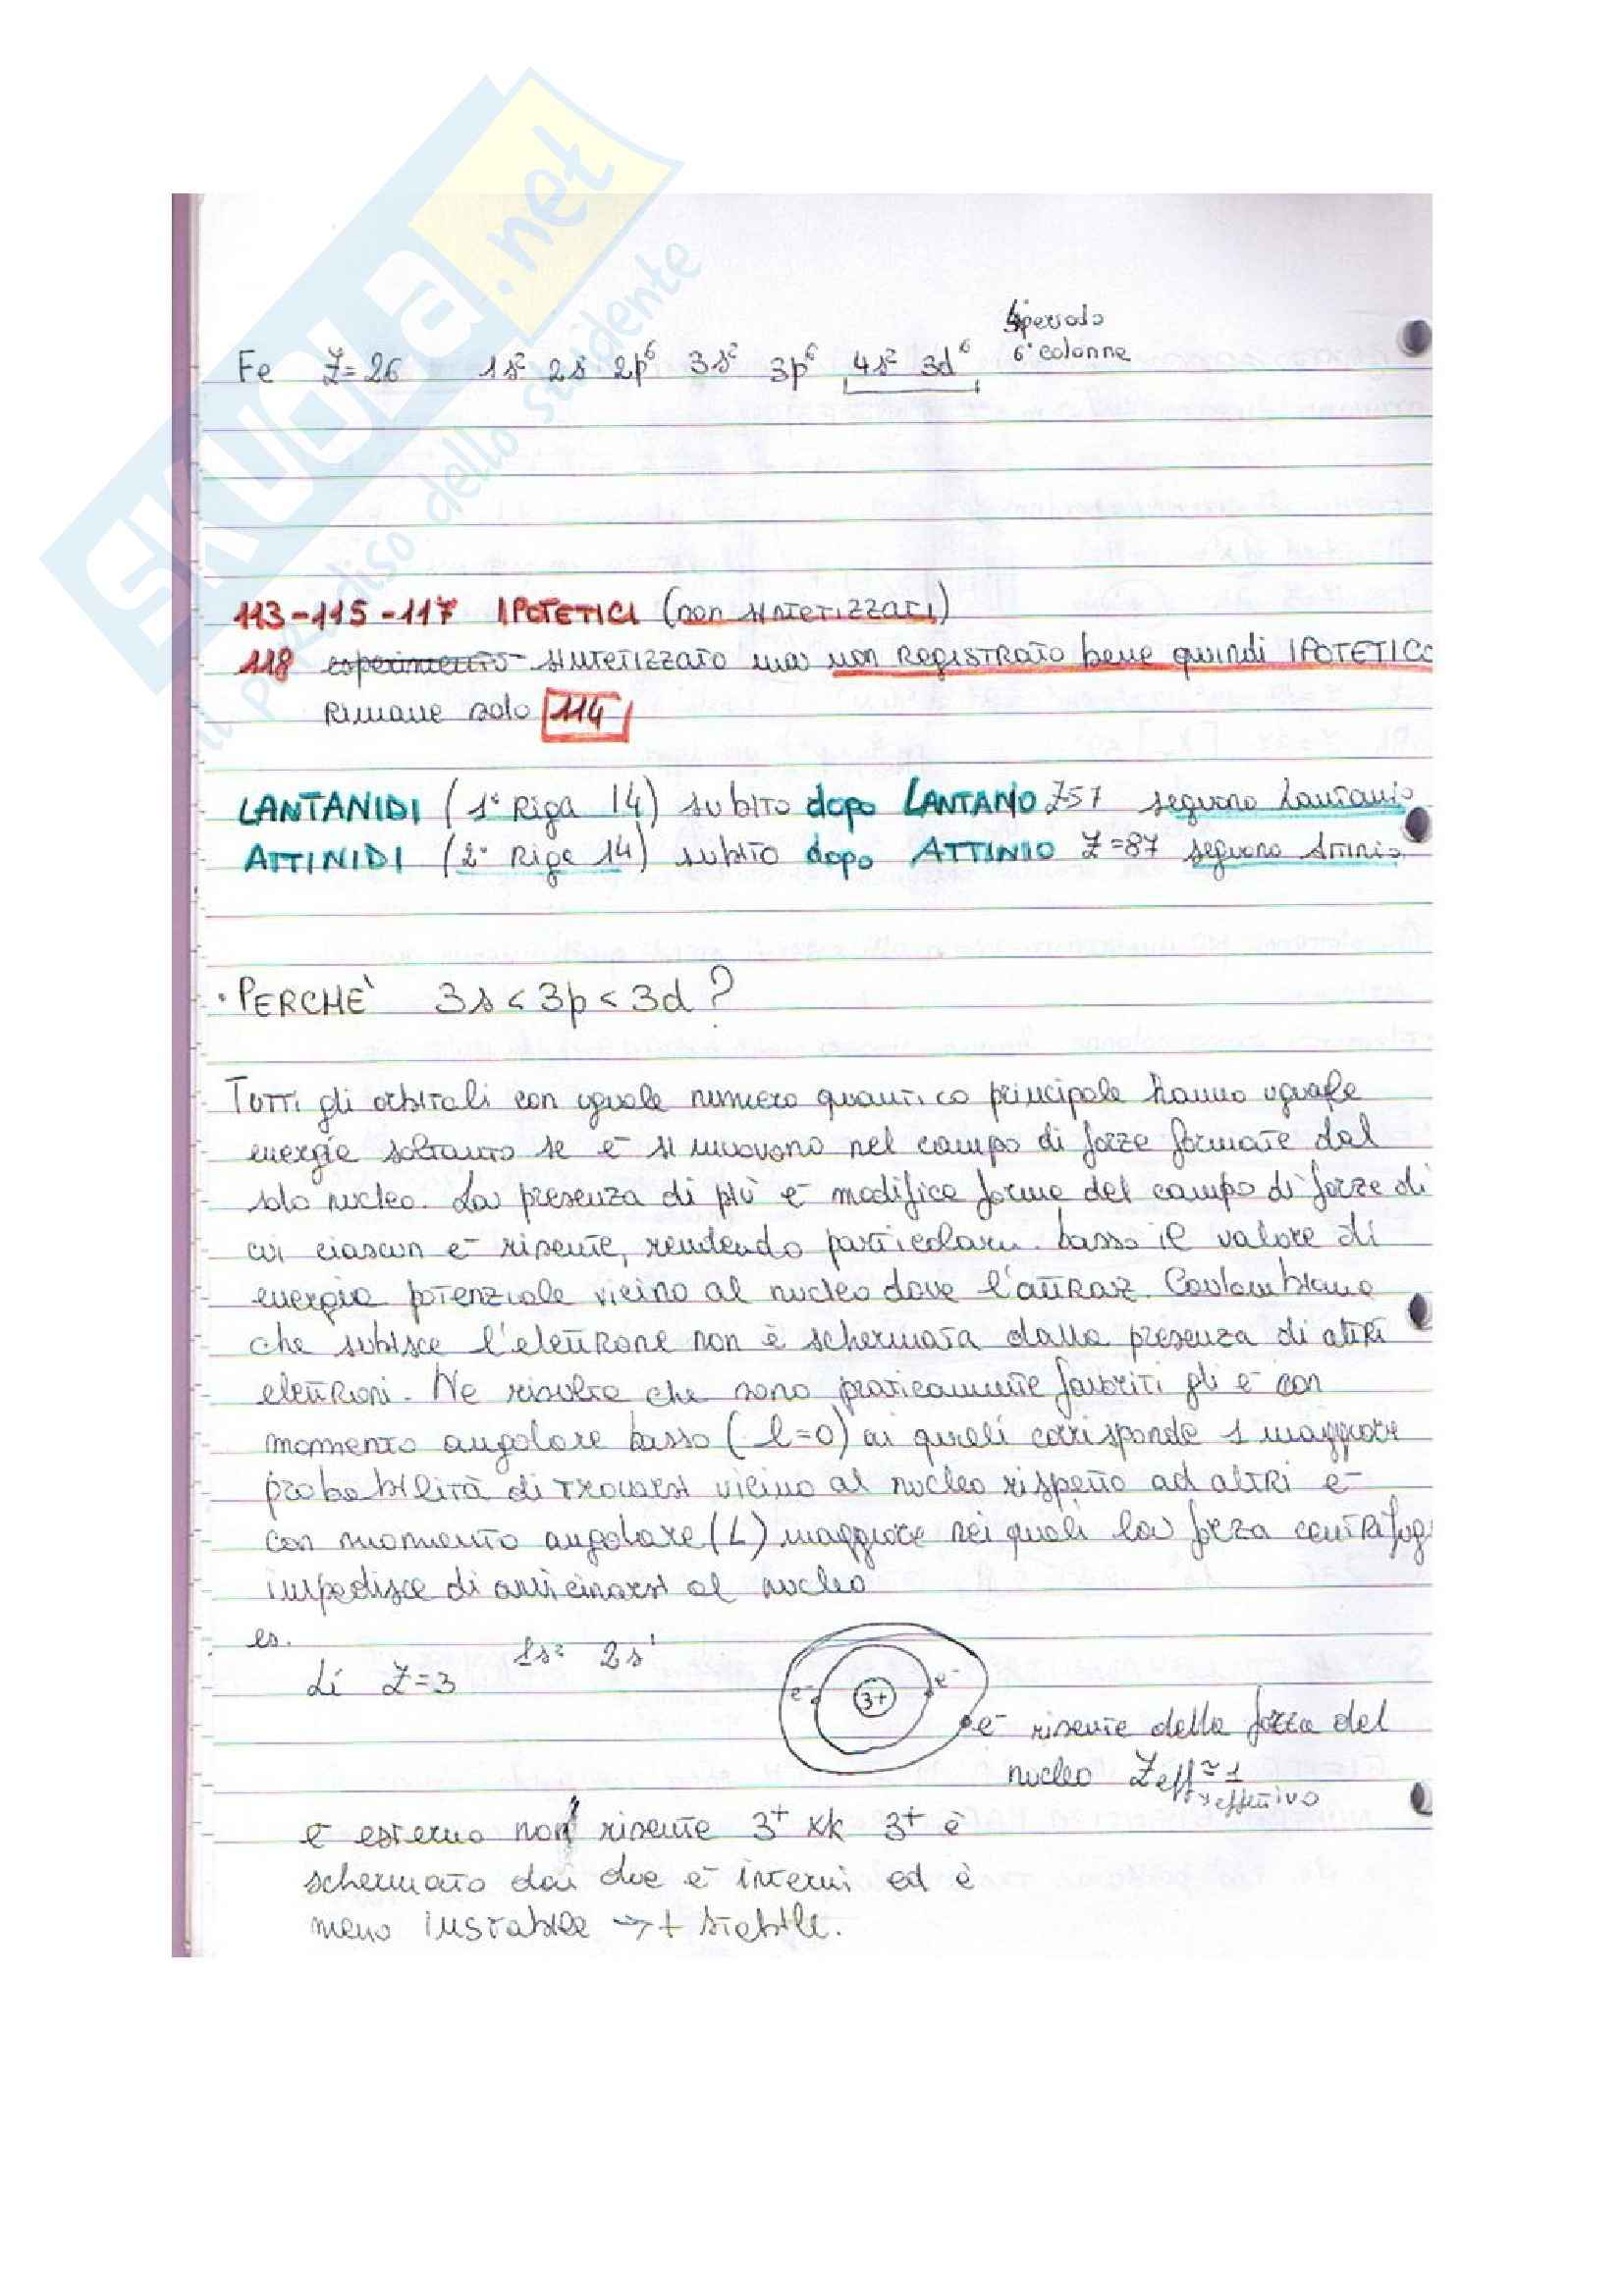 SKUOLA.net
il paradiso dello studente
4°periodo
6° colonne
Fe Z=26 1s² 2s 2p⁶ 3s² 3p⁶ 4s² 3d⁶
113-115-117 IPOTETICI (non sintetizzati)
118 esperimento sintetizzato ma non REGISTRATO bene quindi IPOTETICO
Rimane solo 114
LANTANIDI (1° Riga 14) subito dopo LANTANIO Z57 seguono Lantanio
ATTINIDI (2° Riga 14) subito dopo ATTINIO Z=87 seguono Attinio
· PERCHÈ 3s < 3p < 3d ?
Tutti gli orbitali con uguale numero quantico principale hanno uguale
energie soltanto se e⁻ si muovono nel campo di forze formate dal
solo nucleo. La presenza di più e⁻ modifica forme del campo di forze di
cui ciascun e⁻ risente, rendendo particolarm. basso il valore di
energia potenziale vicino al nucleo dove l'attraz. Coulombiana
che subisce l'elettrone non è schermata dalla presenza di altri
elettroni. Ne risulta che sono praticamente favoriti gli e⁻ con
momento angolare basso (l=0) ai quali corrisponde 1 maggiore
probabilità di trovarsi vicino al nucleo rispetto ad altri e⁻
con momento angolare (L) maggiore nei quali la forza centrifug
impedisce di avvicinarsi al nucleo
es.
Li Z=3 1s² 2s¹
e⁻ 3+ e⁻
e⁻ risente della forza del
nucleo Zeff ≃ 1
→ effettivo
e⁻ esterno non risente 3⁺ xk 3⁺ è
schermato dai due e⁻ interni ed è
meno instabile → + stabile.